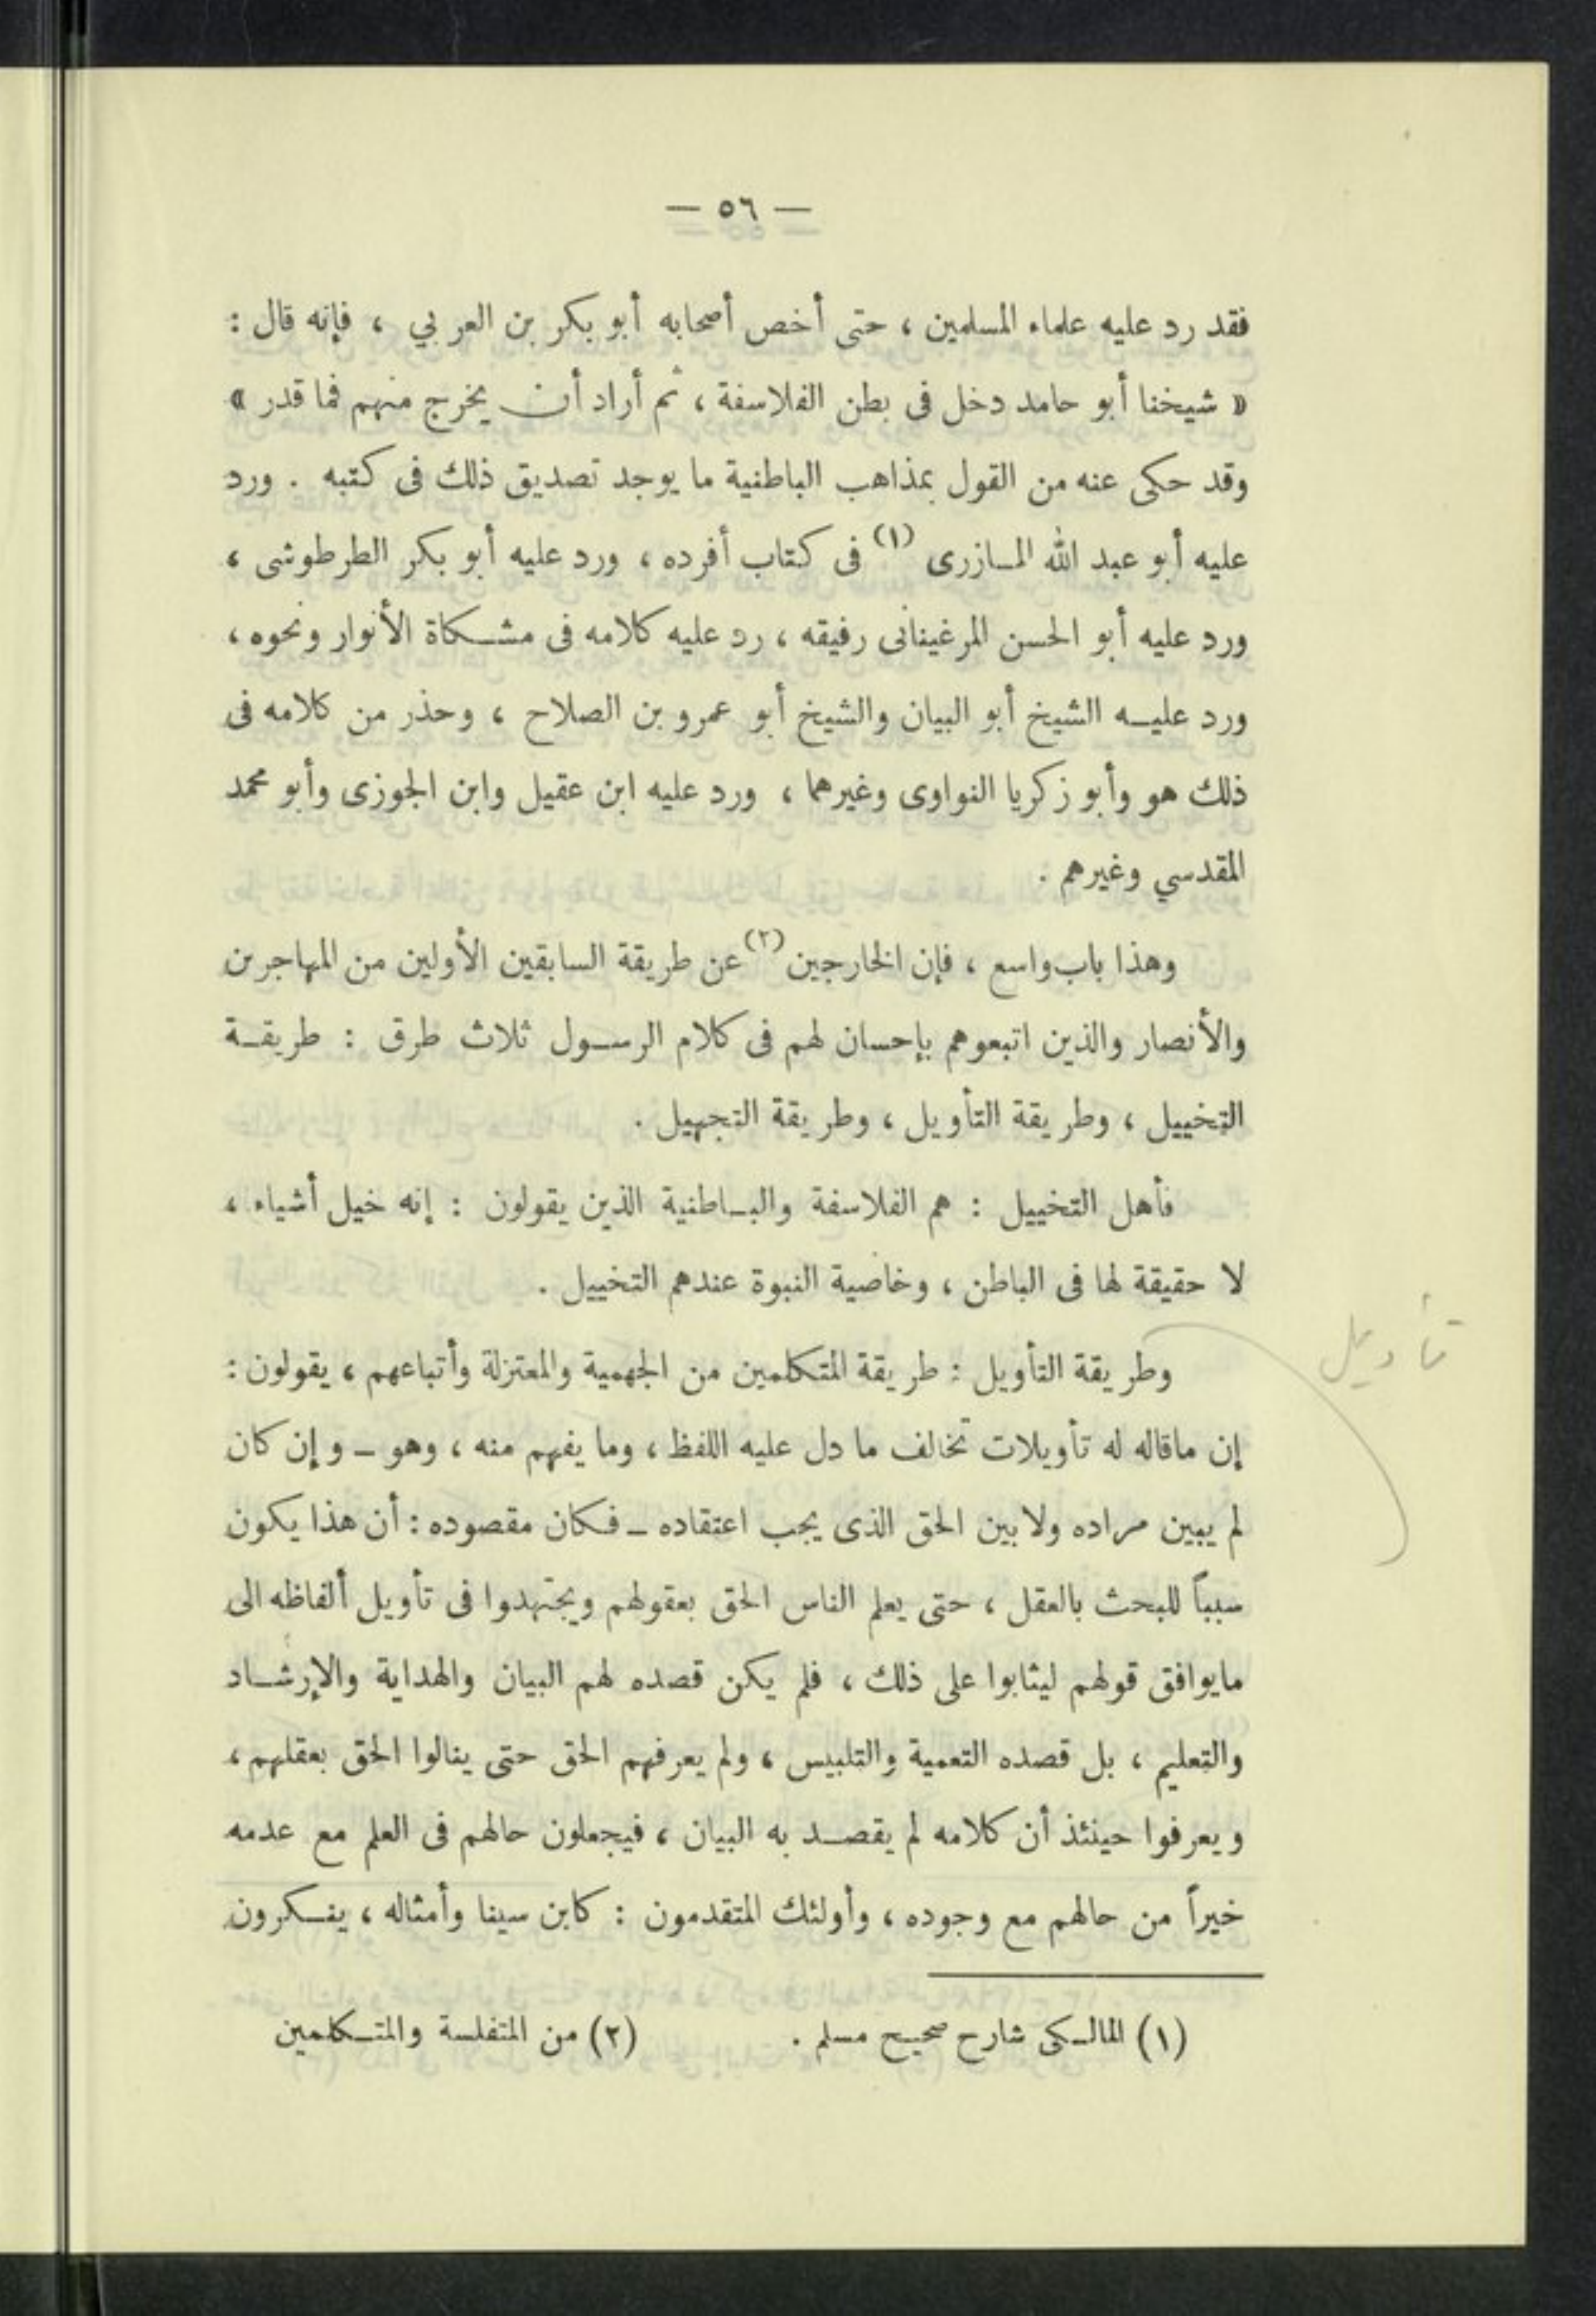 — ٥٦ —
فقد رد عليه علماء المسلمين ، حتى أخص أصحابه أبو بكر بن العربي ، فإنه قال :
« شيخنا أبو حامد دخل فى بطن الفلاسفة ، ثم أراد أن يخرج منهم فما قدر »
وقد حكى عنه من القول بمذاهب الباطنية ما يوجد تصديق ذلك فى كتبه . ورد
عليه أبو عبد الله المازرى (١) فى كتاب أفرده ، ورد عليه أبو بكر الطرطوشى ،
ورد عليه أبو الحسن المرغينانى رفيقه ، رد عليه كلامه فى مشكاة الأنوار ونحوه ،
ورد عليه الشيخ أبو البيان والشيخ أبو عمرو بن الصلاح ، وحذر من كلامه فى
ذلك هو وأبو زكريا النواوى وغيرهما ، ورد عليه ابن عقيل وابن الجوزى وأبو محمد
المقدسي وغيرهم .
وهذا باب واسع ، فإن الخارجين (٢) عن طريقة السابقين الأولين من المهاجرين
والأنصار والذين اتبعوهم بإحسان لهم فى كلام الرسول ثلاث طرق : طريقة
التخييل ، وطريقة التأويل ، وطريقة التجهيل .
فأهل التخييل : هم الفلاسفة والباطنية الذين يقولون : إنه خيل أشياء ،
لا حقيقة لها فى الباطن ، وخاصية النبوة عندهم التخييل .
وطريقة التأويل : طريقة المتكلمين من الجهمية والمعتزلة وأتباعهم ، يقولون :
إن ماقاله له تأويلات تخالف ما دل عليه اللفظ ، وما يفهم منه ، وهو ـ وإن كان
لم يبين مراده ولا بين الحق الذى يجب اعتقاده ـ فكان مقصوده : أن هذا يكون
سبباً للبحث بالعقل ، حتى يعلم الناس الحق بعقولهم ويجتهدوا فى تأويل ألفاظه الى
مايوافق قولهم ليثابوا على ذلك ، فلم يكن قصده لهم البيان والهداية والإرشاد
والتعليم ، بل قصده التعمية والتلبيس ، ولم يعرفهم الحق حتى ينالوا الحق بعقلهم ،
ويعرفوا حينئذ أن كلامه لم يقصد به البيان ، فيجعلون حالهم فى العلم مع عدمه
خيراً من حالهم مع وجوده ، وأولئك المتقدمون : كابن سينا وأمثاله ، ينكرون
(١) المالكى شارح صحيح مسلم . (٢) من المتفلسة والمتكلمين
تأويل